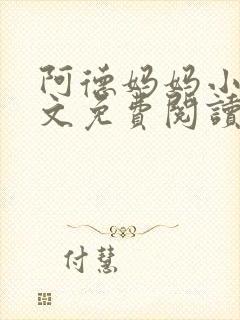 阿德妈妈小
文免費閱讀
付慧